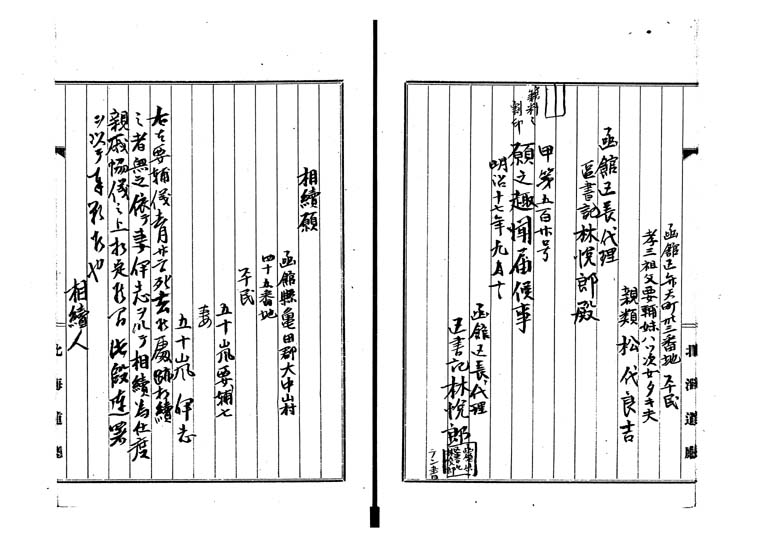 函館区弁天町卅三番地 平民
孝三祖父要輔妹ハツ次女タキ夫
親類 松代良吉
函館区長代理
区書記林悦郎殿
甲第五百廿号
願之趣聞届候事
明治十七年九月十
函館区長代理
区書記林悦郎
北海道廳
相續願
函館縣亀田郡大中山村
四十五番地
平民
五十嵐要輔亡
妻
五十嵐伊志
右亡要輔儀 死去 跡相續
之者無之依テ妻伊志ヲ以テ相續為仕度
親戚協儀之上相定 此段連署
ヲ以テ奉願候也
相續人
北海道廳